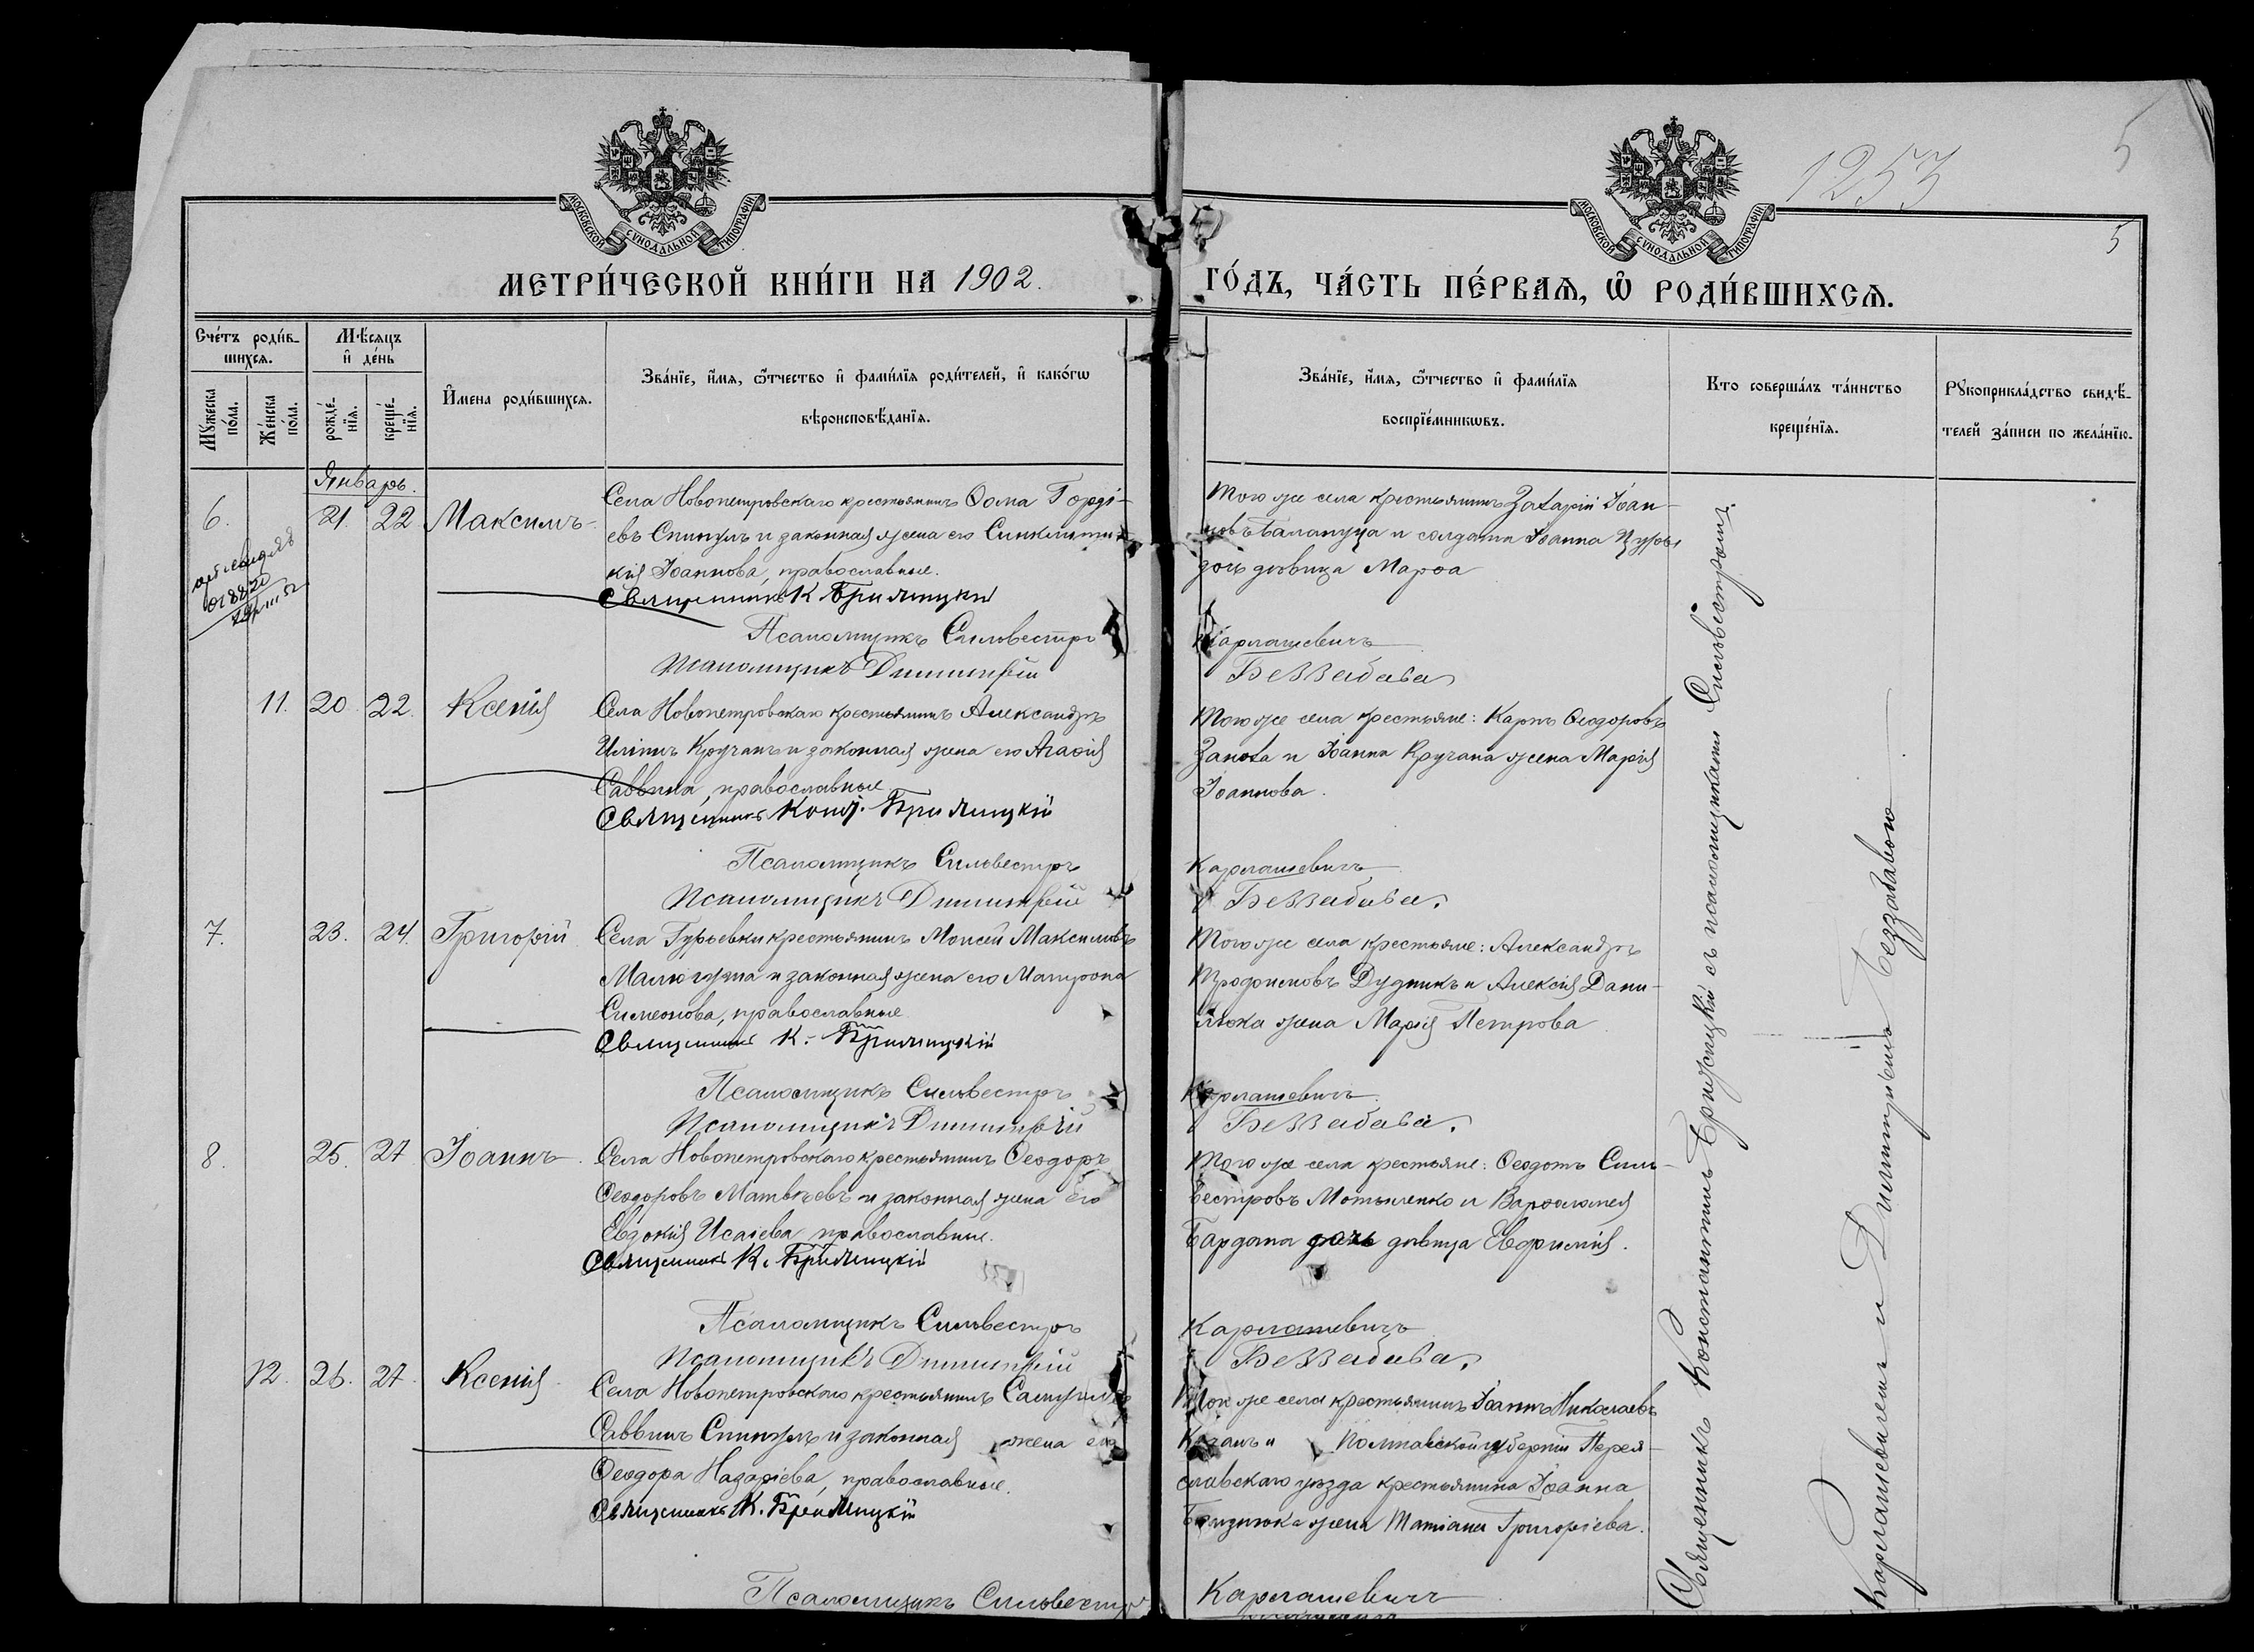 1253
5
5
МОСКОВСКОЙ СѴНОДАЛЬНОЙ ТИПОГРАФІИ
МОСКОВСКОЙ СѴНОДАЛЬНОЙ ТИПОГРАФІИ
МЕТРИ́ЧЕСКОЙ КНИ́ГИ НА 1902.
ГО́ДЪ, ЧА́СТЬ ПЕ́РВАѦ, Ѡ РОДИ́ВШИХСѦ.
Сче́тъ роди́в-
шихсѧ.
Мꙋ́жеска
по́ла.
Же́нска
по́ла.
Мѣ́сяцъ
и҆ де́нь
рожде́-
нїѧ.
креще́-
нїѧ.
И҆́мена роди́вшихсѧ.
Зва́нїе, и҆́мѧ, ѻ҆́тчество и҆ фами́лїѧ роди́телей, и҆ како́гѡ
вѣроисповѣ́данїѧ.
Зва́нїе, и҆́мѧ, ѻ҆́тчество и҆ фами́лїѧ
воспрїе́мникѡвъ.
Кто соверша́лъ та́инство
креще́нїѧ.
Рꙋкоприкла́дство свидѣ́-
телей за́писи по жела́нїю.
Январь.
6.
21. 22 Максимъ
Села Новопетровскаго крестьянинъ Ѳома Горді-
евъ Спинулъ и законная жена его Синклити-
кія Іоаннова, православные.
Священникъ К Бржезицкій
Псаломщикъ Сильвестръ
Псаломщикъ Димитрій
Того же села крестьянинъ Захарій Іоан-
новъ Балануца и солдата Іоанна
дочь дѣвица Марѳа
Карлашевичъ
Беззабава
11. 20. 22. Ксенія
Села Новопетровскаго крестьянинъ Александръ
Иліинъ Кручанъ и законная жена его Агаѳія
Саввина, православные
Священникъ Конст. Бржезицкій
Псаломщикъ Сильвестръ
Псаломщикъ Димитрій
Того же села крестьяне: Карпъ Ѳеодоровъ
Заноха и Іоанна Кручана жена Марія
Іоаннова.
Карлашевичъ
Беззабава.
7. 23. 24. Григорій
Села Гурьевки крестьянинъ Моисей Максимовъ
Малюгуша и законная жена его Матрона
Симеонова, православные
Священникъ К. Бржезицкій
Псаломщикъ Сильвестръ
Псаломщикъ Димитрій
Того же села крестьяне: Александръ
Трофимовъ Дудникъ и Алексія Дани-
люка жена Марія Петрова
Карлашевичъ
Беззабава.
8. 25. 27 Іоаннъ
Села Новопетровскаго крестьянинъ Ѳеодоръ
Ѳеодоровъ Матвѣевъ и законная жена его
Евдокія Исаіева, православные.
Священникъ К. Бржезицкій
Псаломщикъ Сильвестръ
Псаломщикъ Димитрій
Того же села крестьяне: Ѳеодотъ Силь-
вестровъ Мотыленко и Варѳоломея
Бардана дочь дѣвица Евфимія.
Карлашевичъ
Беззабава.
12. 26. 27. Ксенія
Села Новопетровскаго крестьянинъ Самуилъ
Саввинъ Спинулъ и законная жена его
Ѳеодора Назаріева, православные.
Священникъ К. Бржезицкій
Псаломщикъ Сильвестръ
Того же села крестьянинъ Іоаннъ Николаевъ
и Полтавской губерніи Перея-
славскаго уѣзда крестьянина Іоанна
жена Татіана Григоріева.
Карлашевичъ
Священникъ Константинъ Бржезицкій съ псаломщиками Сильвестромъ
Карлашевичемъ и Димитріемъ Беззабавою